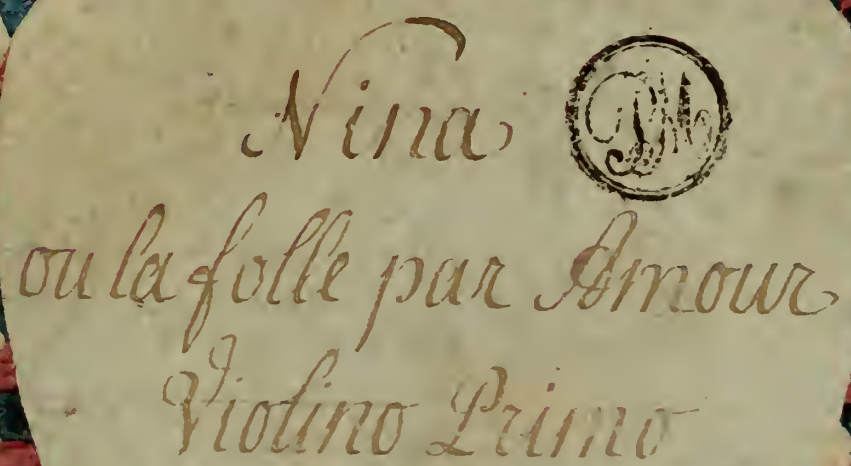 Nina
ou la folle par Amour
Violino Primo